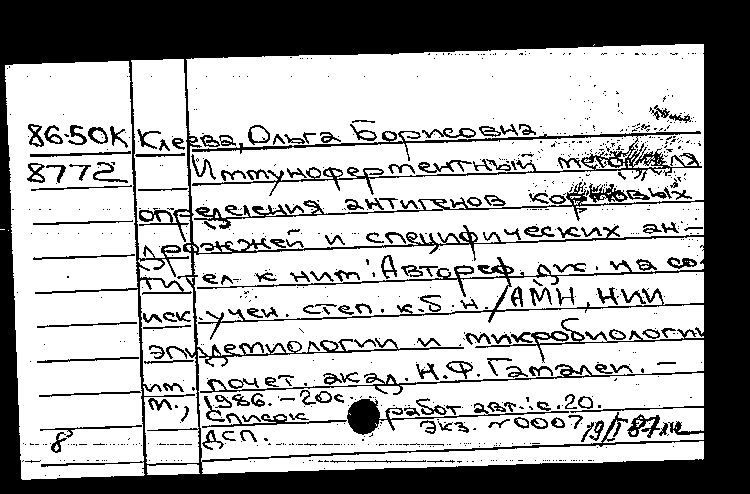 86-50К Клеева, Ольга Борисовна
8772 Иммуноферментный метод для
определения антигенов кормовых
дрожжей и специфических ан-
тител к ним: Автореф. дис. на со
иск. учен. степ. к.б.н. / АМН, НИИ
эпидемиологии и микробиологии
им. почет. акад. Н.Ф. Гамалеи. –
М., 1986. – 20с.
Список работ авт.: с. 20.
ДСП. Экз. №0007
8 19/I 87